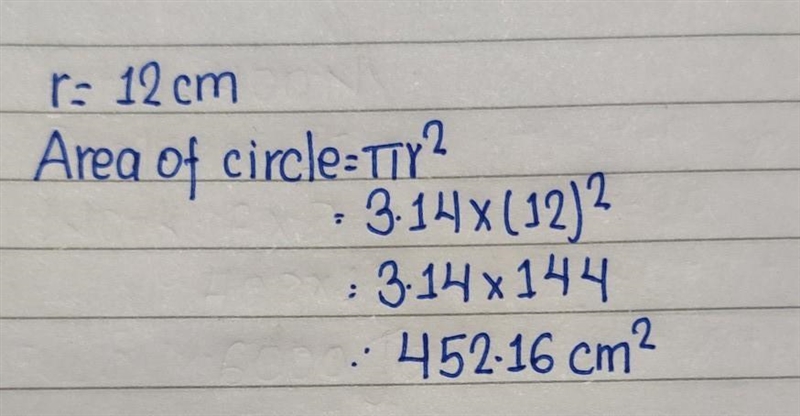 r= 12 cm
Area of circle=πr²
= 3.14×(12)²
= 3.14×144
∴ 452.16 cm²